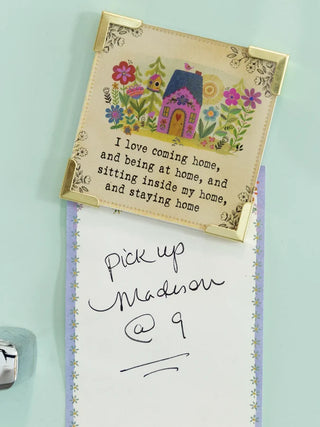 I love coming home,
and being at home, and
sitting inside my home,
and staying home
pick up
Madison
@ 9